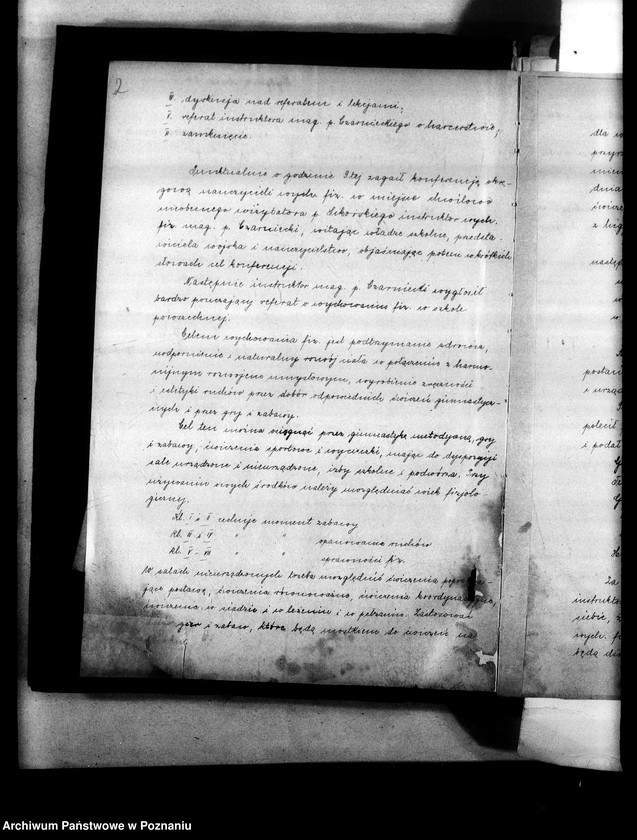 2
IV. dyskusja nad referatem i lekcjami;
V. referat instruktora mag. p. Czarnieckiego o harcerstwie;
VI. zamknięcie.
Punktualnie o godzinie 9tej zagaił konferencję okrę-
gową nauczycieli wych. fiz. w miejsce chwilowo
nieobecnego wizytatora p. Sikorskiego instruktor wych.
fiz. mag. p. Czarniecki, witając władze szkolne, przedsta-
wiciela wojska i nauczycielstwo, objaśniając potem w krótkich
słowach cel konferencji.
Następnie instruktor mag. p. Czarniecki wygłosił
bardzo pouczający referat o wychowaniu fiz. w szkole
powszechnej.
Celem wychowania fiz. jest podtrzymanie zdrowia,
uodpornienie i naturalny rozwój ciała w połączeniu z harmo-
nijnym rozwojem umysłowym, wyrobienie zręczności
i estetyki ruchów przez dobór odpowiednich ćwiczeń gimnastycz-
nych i przez gry i zabawy.
Cel ten można osiągnąć przez gimnastykę metodyczną, gry
i zabawy, ćwiczenia sportowe i wycieczki, mając do dyspozycji
sale urządzone i nieurządzone, izby szkolne i podwórza. Przy
używaniu owych środków należy uwzględniać wiek fizjolo
giczny.
Kl. I i II cechuje moment zabawy
Kl. III i IV " " opanowanie ruchów
Kl. V - VII " " sprawności fiz.
W salach nieurządzonych trzeba uwzględnić ćwiczenia
jące postawę, ćwiczenia równoważne, ćwiczenia koordynacyjne,
ćwiczenia w siadzie i w leżeniu i w pełzaniu. Zastosować
gier i zabaw, które będą środkiem do ćwiczeń na
dla
z
w
w
i
i podał
Za
instrukto
siebie, z
wych. fi
będą
Archiwum Państwowe w Poznaniu